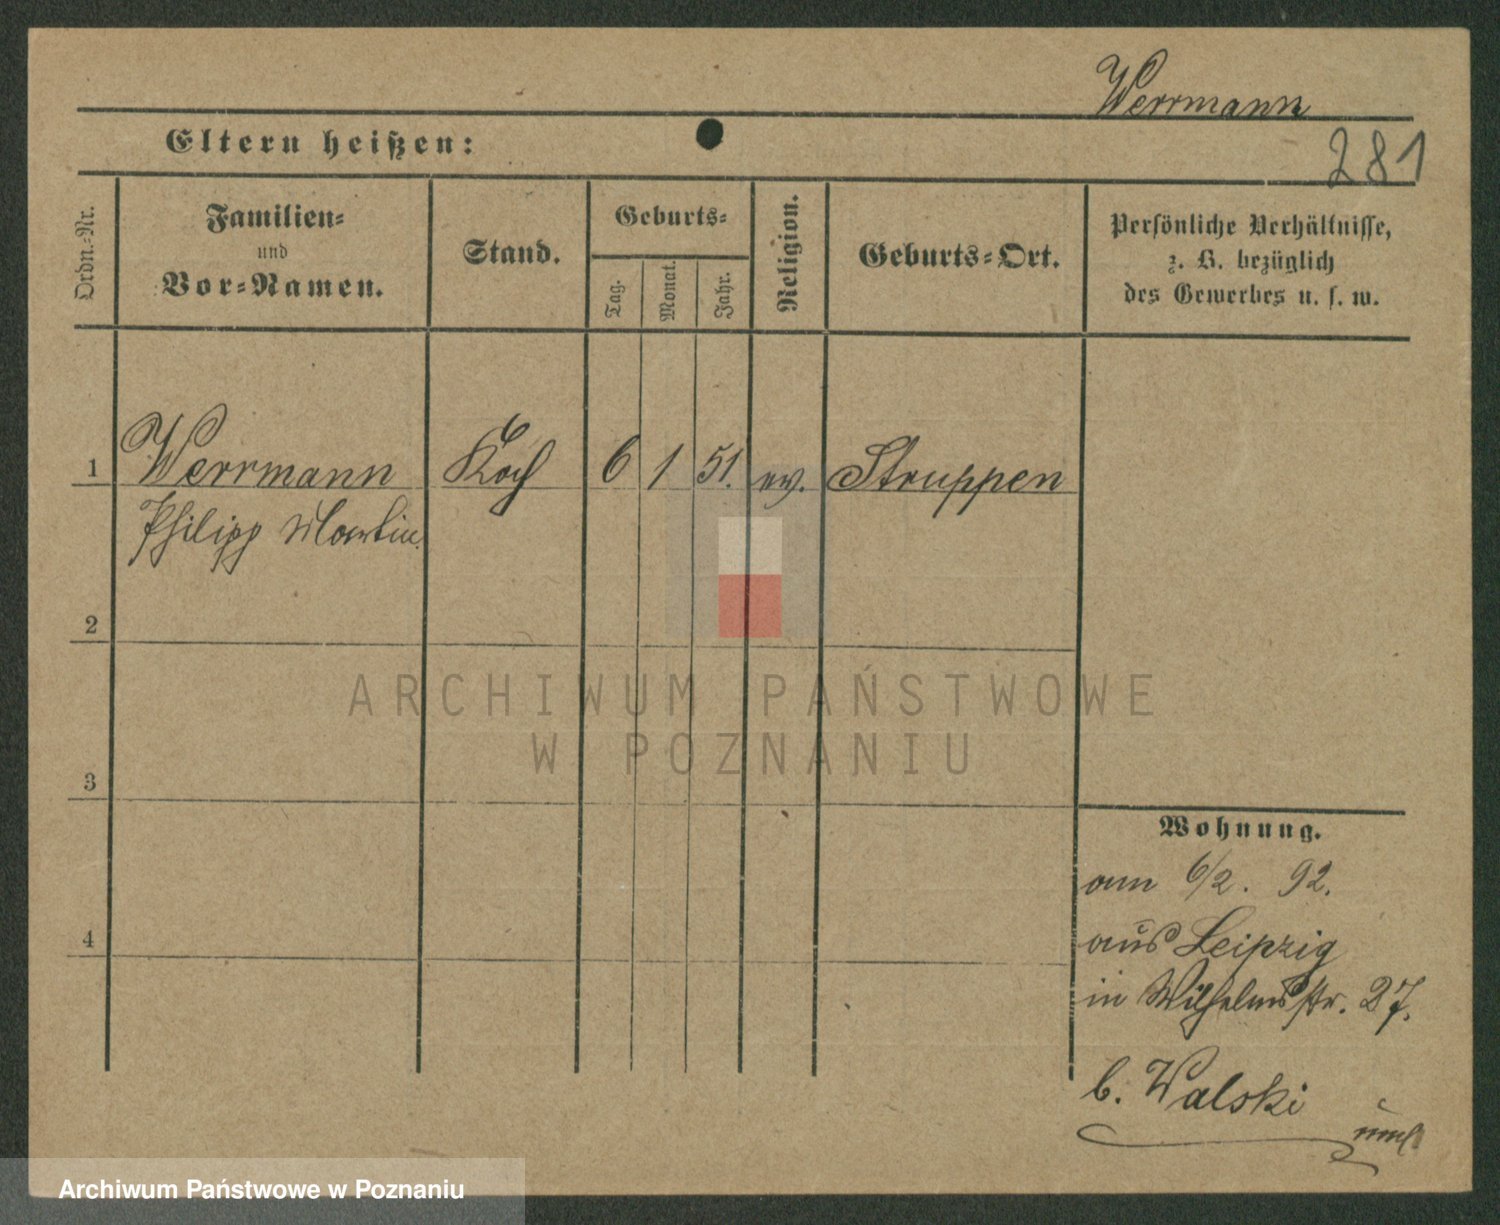 Werrmann
Eltern heißen:
281
Ordn.=Nr.
Familien=
und
Vor=Namen.
Stand.
Geburts=
Tag.
Monat.
Jahr.
Religion.
Geburts=Ort.
Persönliche Verhältnisse,
z. B. bezüglich
des Gewerbes u. s. w.
1 Werrmann Koch 6 1 51. ev. Struppen
Philipp Martin.
2
3
4
ARCHIWUM PAŃSTWOWE
W POZNANIU
Wohnung.
am 6/2. 92.
aus Leipzig
in Wilhelmsstr. 27.
b. Walski
Archiwum Państwowe w Poznaniu